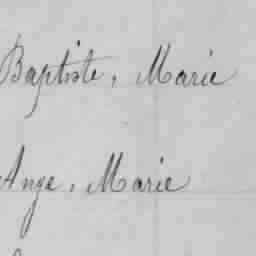 Baptiste, Marie
Ange, Marie